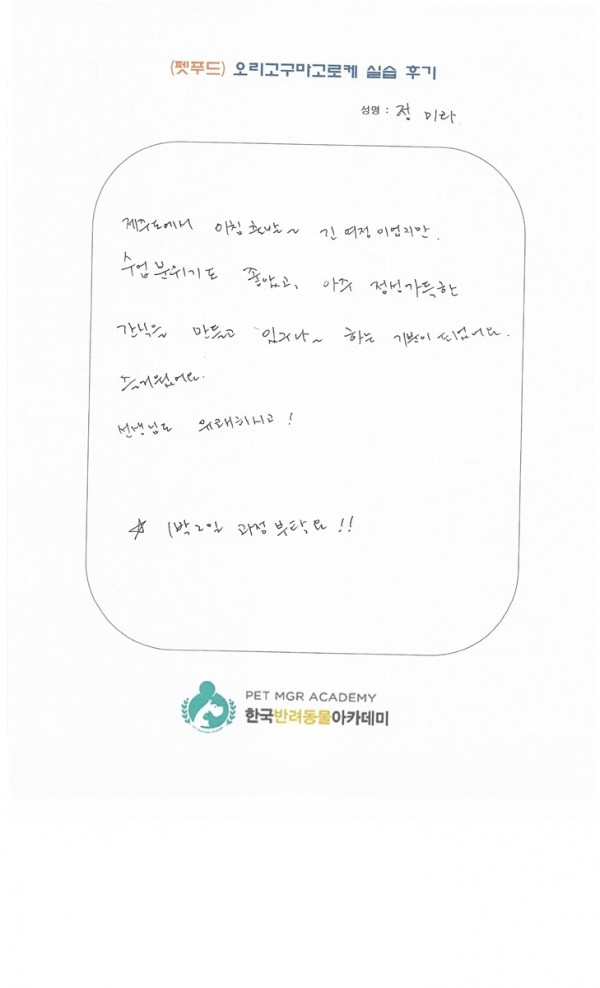 (펫푸드) 오리고구마고로케 실습 후기
성명 : 정 미라
제주도에서 아침 출발~ 긴 여정이었지만.
수업분위기도 좋았고, 아주 정성가득한
간식을 만들고 있구나~ 하는 기분이 되었어요.
즐거웠어요.
선생님도 유쾌하시고!
☆ 1박2일 과정부탁요!!
PET MGR ACADEMY
한국반려동물아카데미